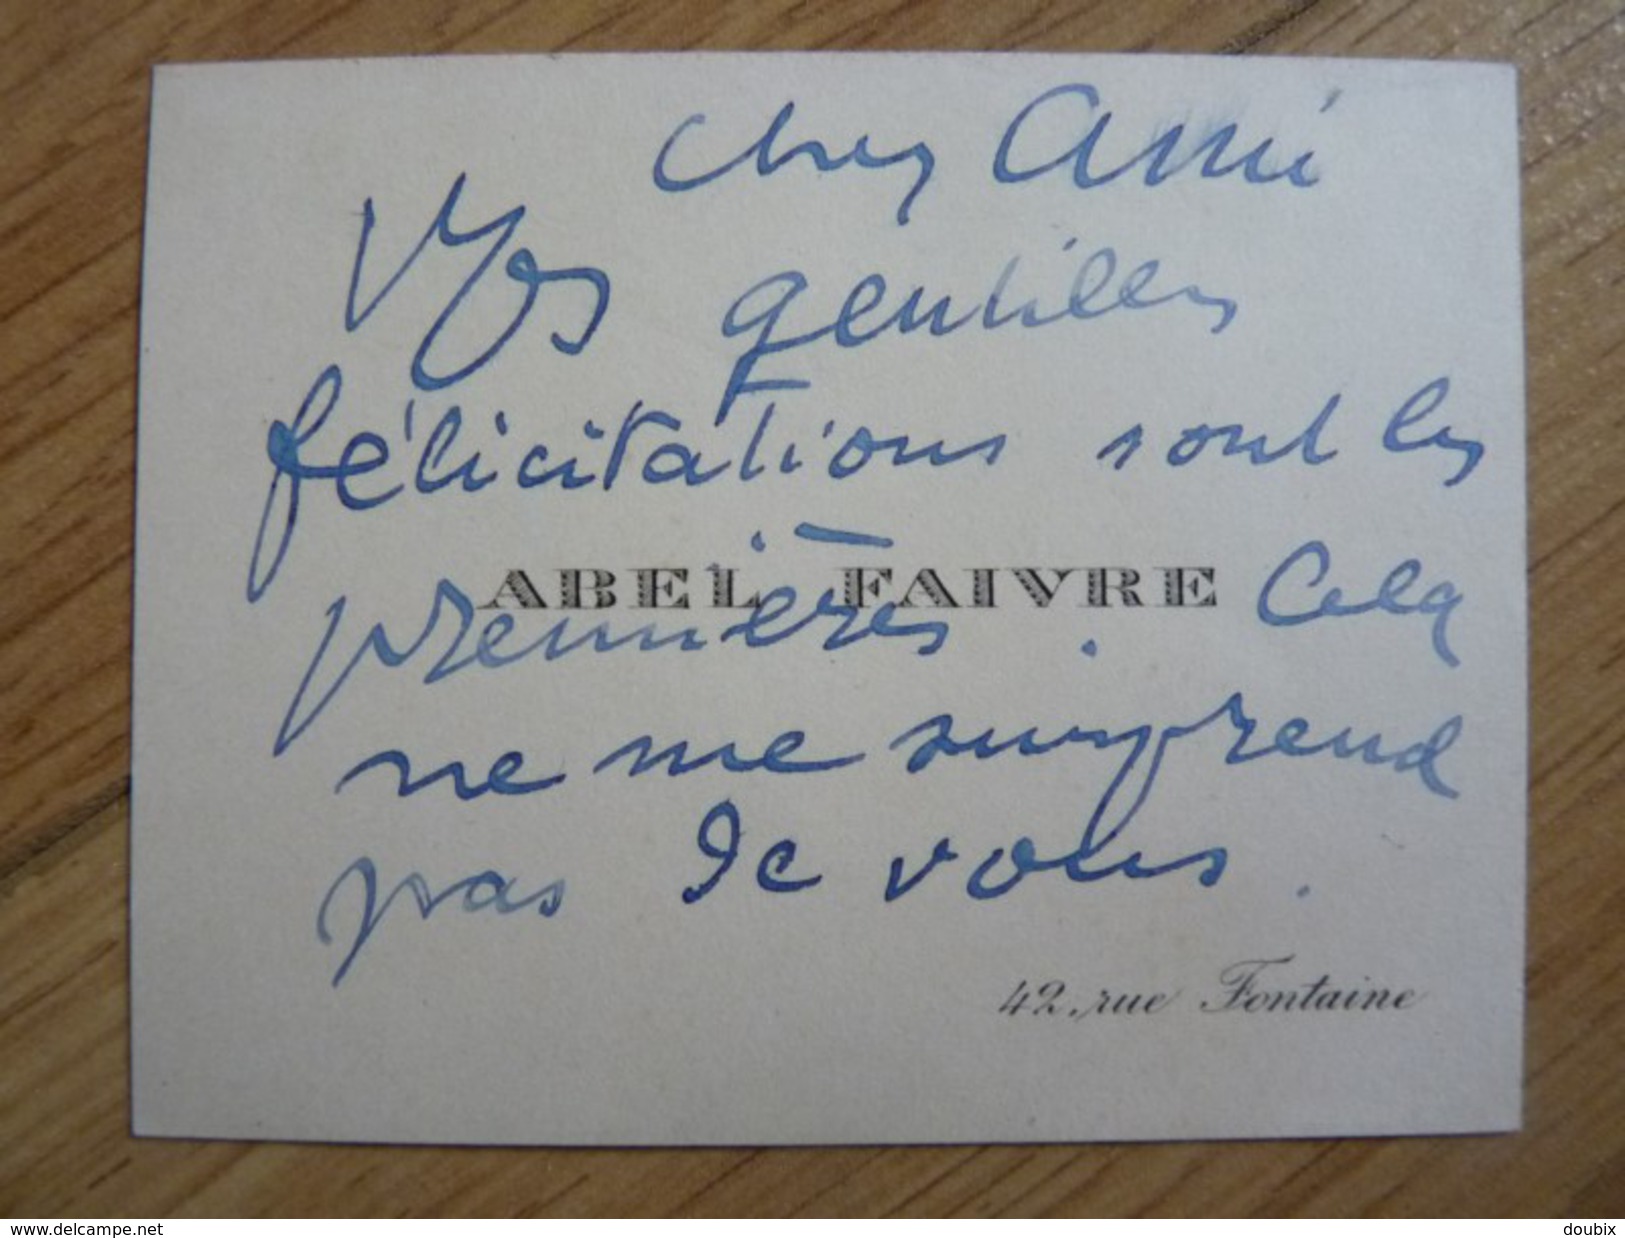 Cher Ami
Vos gentilles
félicitations sont les
ABEL FAIVRE
premières. Cela
ne me surprend
pas de vous.
42, rue Fontaine
www.delcampe.net
doubix